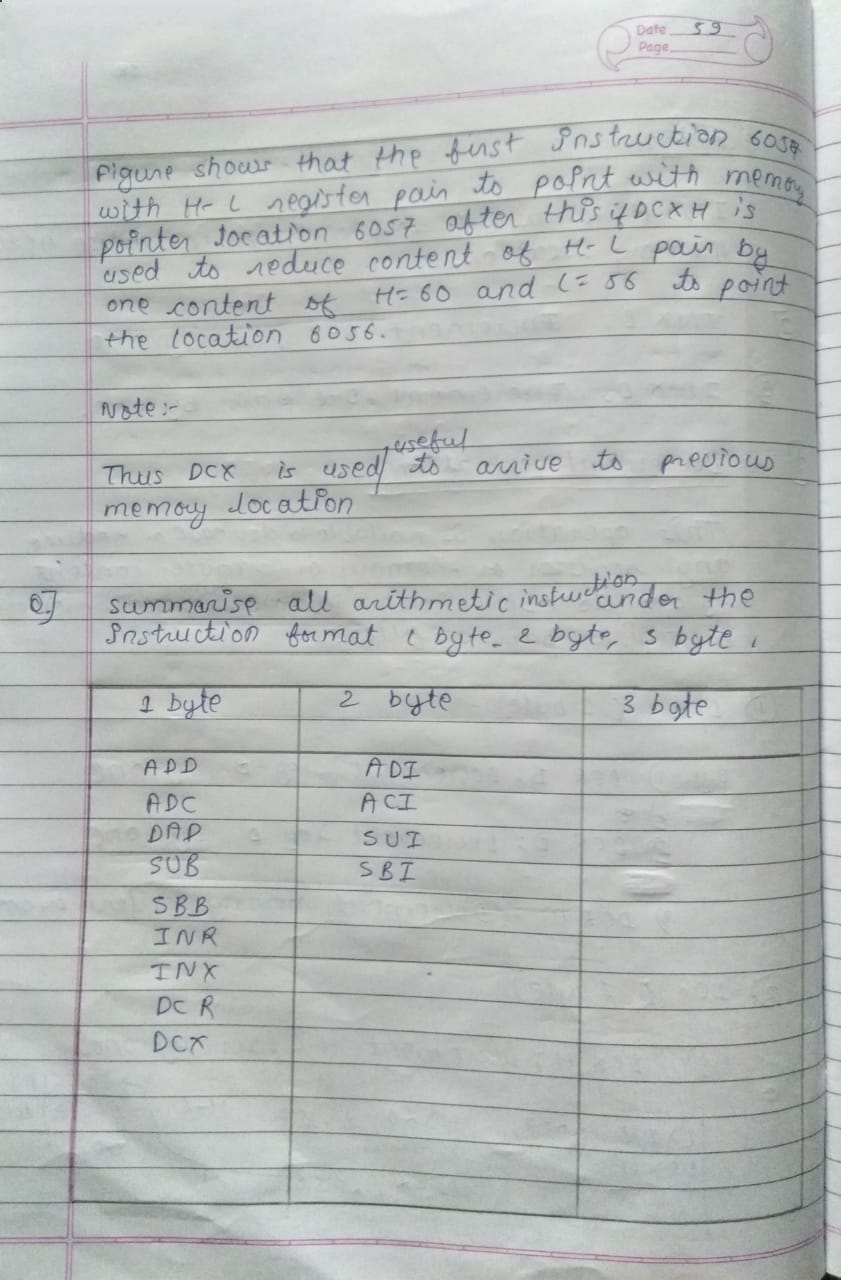 Date 59
Page
Figure shows that the first instruction 6057
with H-L register pair to point with memory
pointer location 6057 after this if DCX H is
used to reduce content of H-L pair by
one content of H=60 and L=56 to point
the location 6056.
Note:-
useful
Thus DCX is used/ to arrive to previous
memory location
Q.] summarise all arithmetic instruction under the
instruction format 1 byte, 2 byte, 3 byte.
1 byte 2 byte 3 byte
ADD ADI
ADC ACI
DAD SUI
SUB SBI
SBB
INR
INX
DCR
DCX